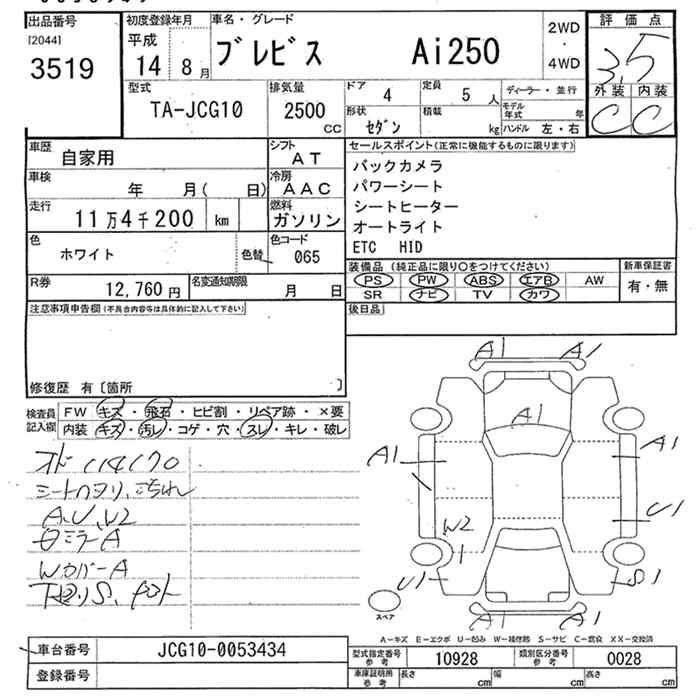 出品番号 初度登録年月 車名・グレード 評価点
[2044] 平成 ブレビス Ai250 2WD・4WD 3.5
3519 14年 8月
外装 内装
型式 排気量 ドア 4 定員 5人 ディーラー・並行 C C
TA-JCG10 2500cc 形状 セダン 積載 kg モデル年式 年
ハンドル 左・右
車歴 自家用 シフト AT セールスポイント(正常に機能するものに限ります)
車検 年 月( 日) 冷房 AAC バックカメラ
パワーシート
走行 11万4千200 km 燃料 ガソリン シートヒーター
オートライト
色 ホワイト 色替 色コード 065 ETC HID
装備品(純正品に限り○をつけてください) 新車保証書
PS PW ABS エアB AW 有・無
R券 12,760円 名変通知期限 月 日 SR ナビ TV カワ
注意事項申告欄(不具合内容等は具体的に記入して下さい) 後日品
修復歴 有〔箇所 〕
検査員記入欄 FW キズ・飛石・ヒビ割・リペア跡・×要
内装 キズ・汚レ・コゲ・穴・スレ・キレ・破レ
A1 A1
A1
A1 A1
U1
W2
1
U1 S1
A1 A1
スペア
シートヘタリ、
A、U、W2
ミラーA
WカバーA
A-キズ E-エクボ U-凹み W-補修跡 S-サビ C-腐食 XX-交換済
車台番号 JCG10-0053434 型式指定番号 参考 10928 類別区分番号 参考 0028
登録番号 車庫証明用 参考 長さ cm 幅 cm 高さ cm